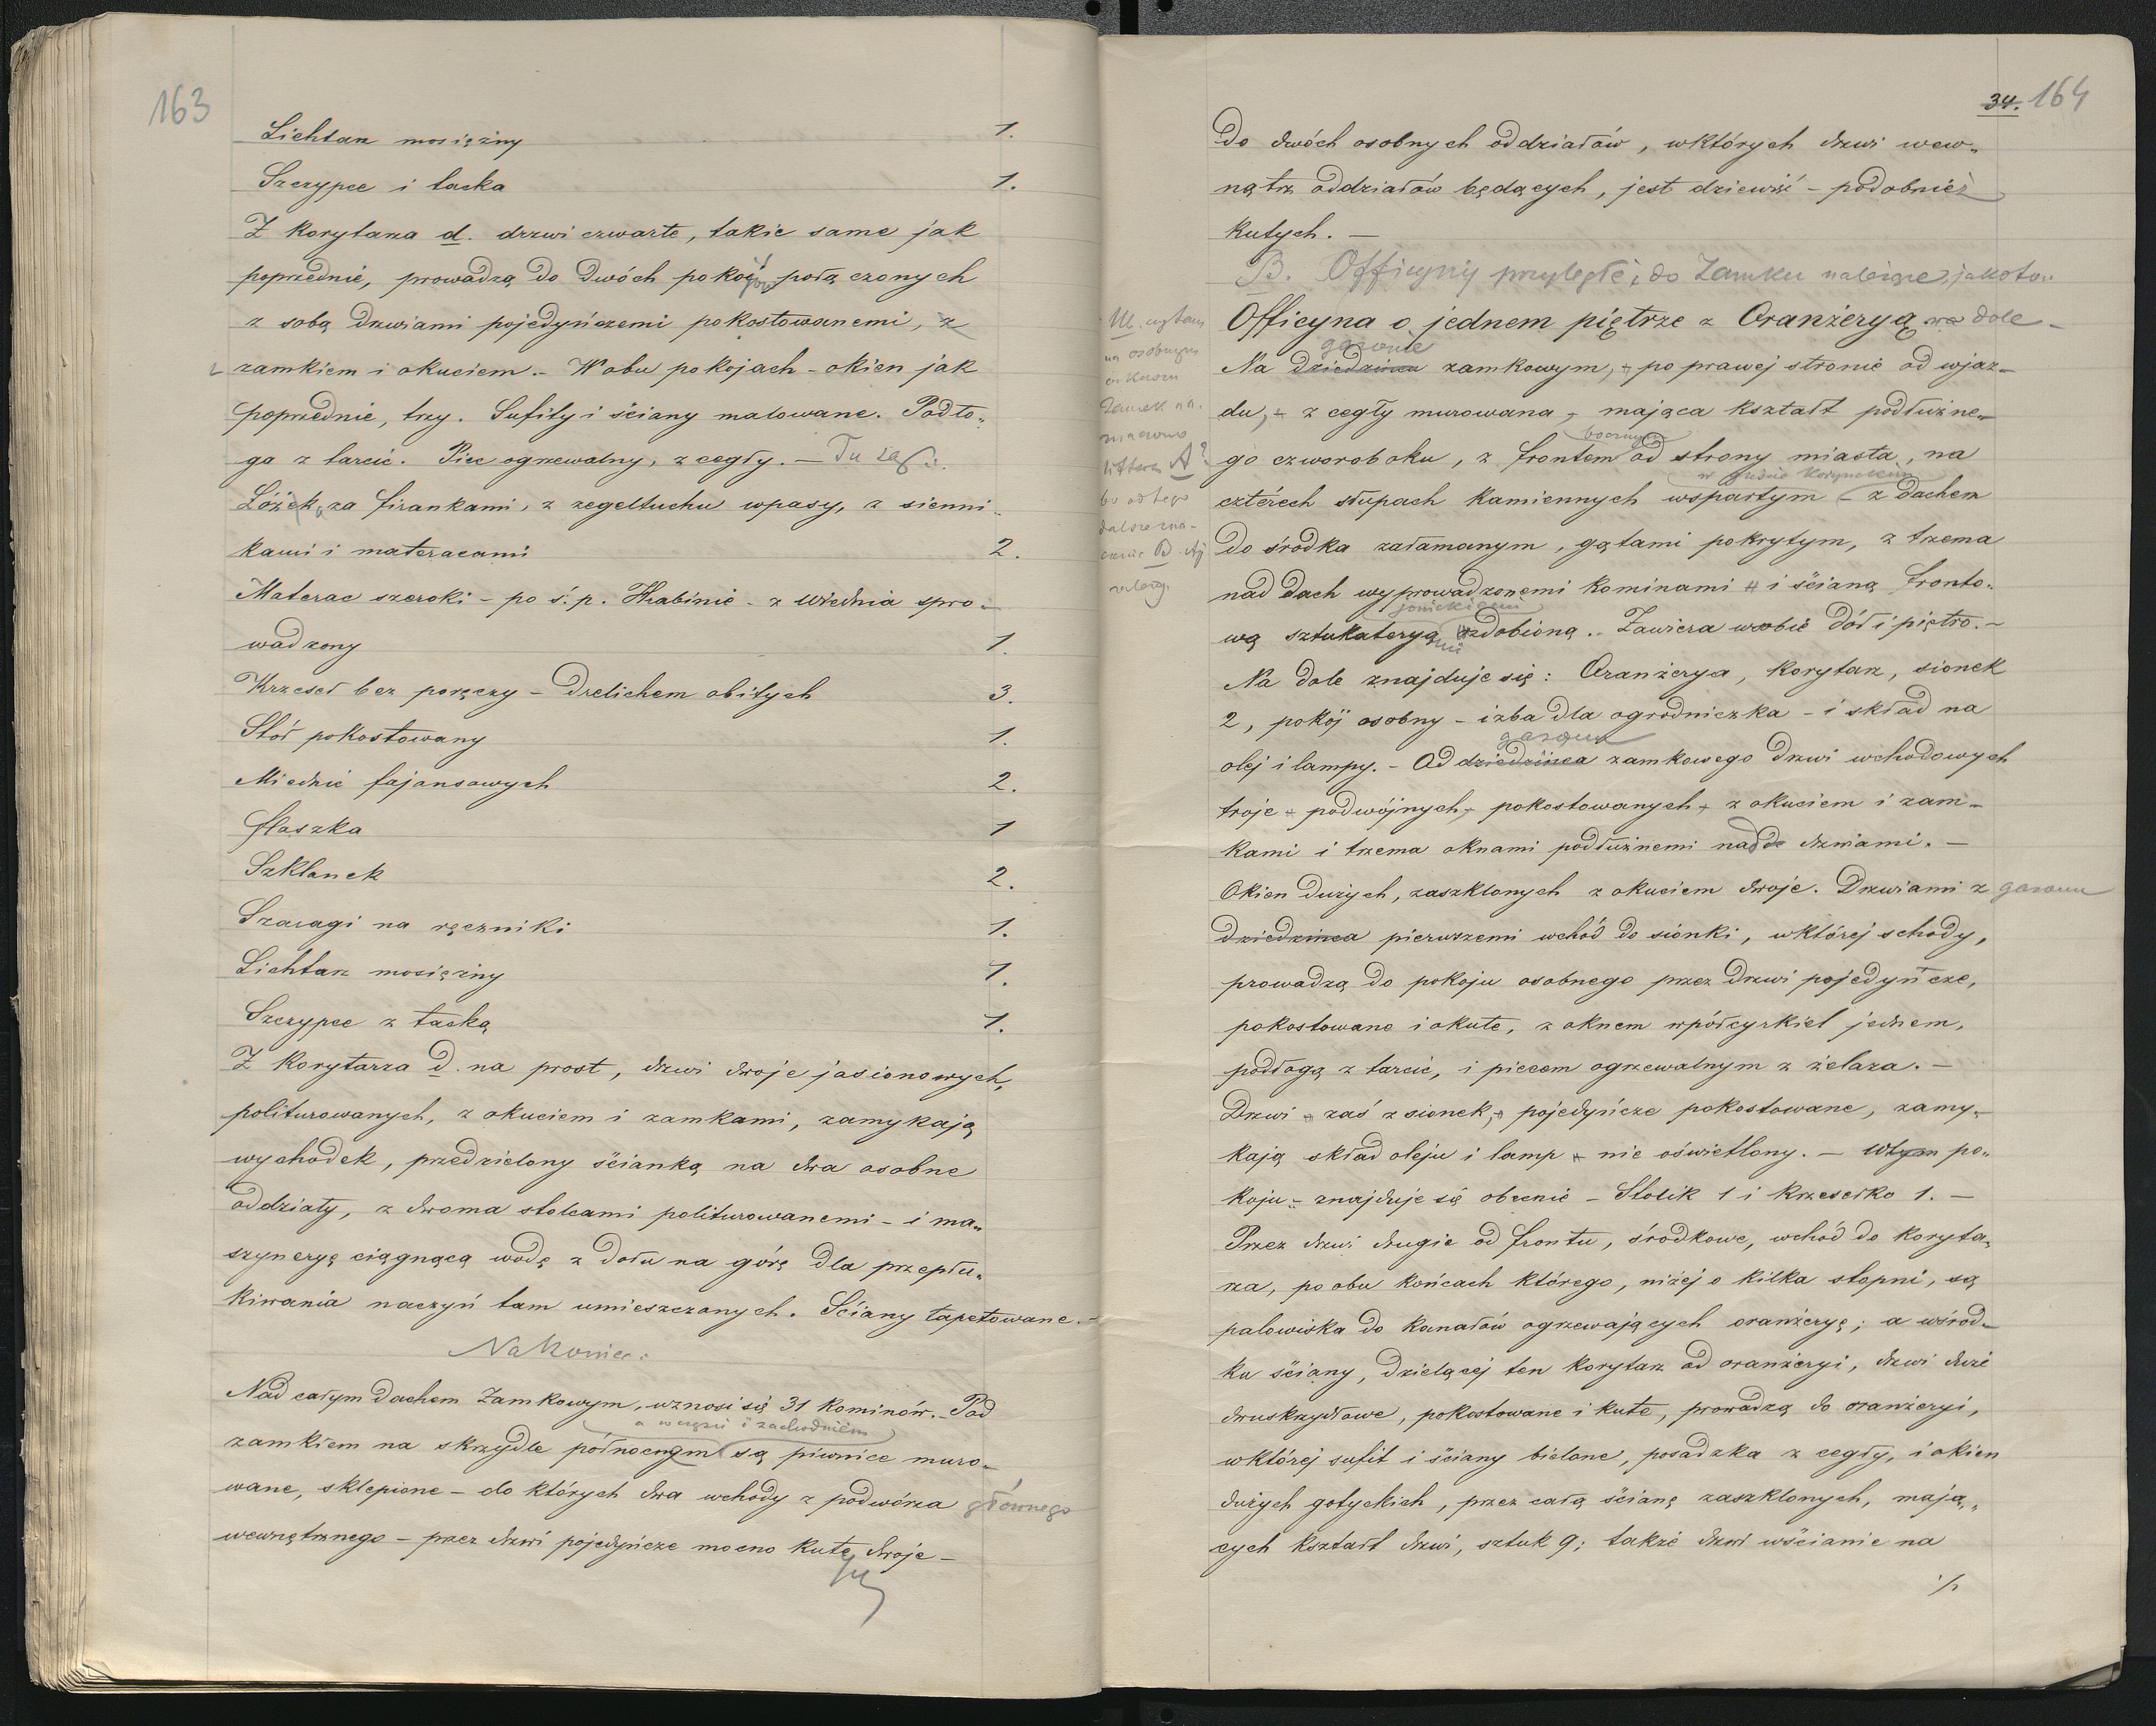 163
Lichtarz mosiężny 1.
Szczypce i tacka 1.
Z korytarza d. drzwi czwarte, takie same jak
poprzednie, prowadzą do dwóch pokoi połączonych
z sobą drzwiami pojedyńczemi pokostowanemi, z
zamkiem i okuciem. - W obu pokojach - okien jak
poprzednie, trzy. Sufity i ściany malowane. Podło-
ga z tarcic. Piec ogrzewalny, z cegły. - Tu są:
Łóżek, za firankami, z zegeltuchu wpasy, z sienni-
kami i materacami 2.
Materac szeroki - po ś. p. Hrabinie - z Wiednia spro-
wadzony 1.
Krzeseł bez poręczy - drelichem obitych 3.
Stół pokostowany 1.
Miednic fajansowych 2.
flaszka 1
Szklanek 2.
Szaragi na ręczniki 1.
Lichtarz mosiężny 1.
Szczypce z tacką 1.
Z korytarza d. na prost, drzwi dwoje jasionowych,
politurowanych, z okuciem i zamkami, zamykają
wychodek, przedzielony ścianką na dwa osobne
oddziały, z dwoma stolcami politurowanemi - i ma-
szyneryę ciągnącą wodę z dołu na górę dla przepłu-
kiwania naczyń tam umieszczonych. Ściany tapetowane. -
Nakoniec:
Nad całym dachem Zamkowym, wznosi się 31 kominów. - Pod
a w części i zachodniém
zamkiem na skrzydle północnym są piwnice muro-
wane, sklepione - do których dwa wchody z podwórza głównego
wewnętrznego - przez drzwi pojedyńcze mocno kute, dwoje -
34. 164
Do dwóch osobnych oddziałów, w których drzwi wew-
nątrz oddziałów będących, jest dziewięć - podobnież
kutych. -
B. Officyny przyległe, do Zamku należące, jakoto:
Officyna o jednem piętrze z Oranżeryą na dole -
gazonie
Na dziedzińcu zamkowym, - po prawej stronie od wjaz-
du, - z cegły murowana, mająca kształt podłużne-
bocznym
go czworoboku, z frontem od strony miasta, na
czterech słupach kamiennych wspartym - z dachem
do środka załamanym, gątami pokrytym, z trzema
nad dach wyprowadzonemi kominami i ścianą fronto-
wą sztukateryą ozdobioną. - Zawiera w sobie dół i piętro. -
Na dole znajduje się: Oranżerya, korytarz, sionek
2, pokój osobny - izba dla ogrodniczka - i skład na
gazonu
olej i lampy. - Od dziedzińca zamkowego drzwi wchodowych
troje - podwójnych, pokostowanych, z okuciem i zam-
kami i trzema oknami podłużnemi nad drzwiami. -
Okien dużych, zaszklonych z okuciem dwoje. Drzwiami z gazonu
dziedzińca pierwszemi wchód do sionki, w której schody,
prowadzą do pokoju osobnego przez drzwi pojedyńcze,
pokostowane i okute, z oknem w półcyrkiel jednem,
podłogą z tarcic, i piecem ogrzewalnym z żelaza. -
Drzwi zaś z sionek, pojedyńcze pokostowane, zamy-
kają skład oleju i lamp nie oświetlony. - W tym po-
koju - znajduje się obecnie - Stolik 1 i krzesełko 1. -
Przez drzwi drugie od frontu, środkowe, wchód do koryta-
rza, po obu końcach którego, niżéj o kilka stopni, są
palowiska do kanałów ogrzewających oranżeryę; a w środ-
ku ściany, dzielącéj ten korytarz od oranżeryi, drzwi duże
dwuskrzydłowe, pokostowane i kute, prowadzą do oranżeryi,
w której sufit i ściany bielone, posadzka z cegły, i okien
dużych gotyckich, przez całą ścianę zaszklonych, mają-
cych kształt drzwi, sztuk 9; także drzwi w ścianie na